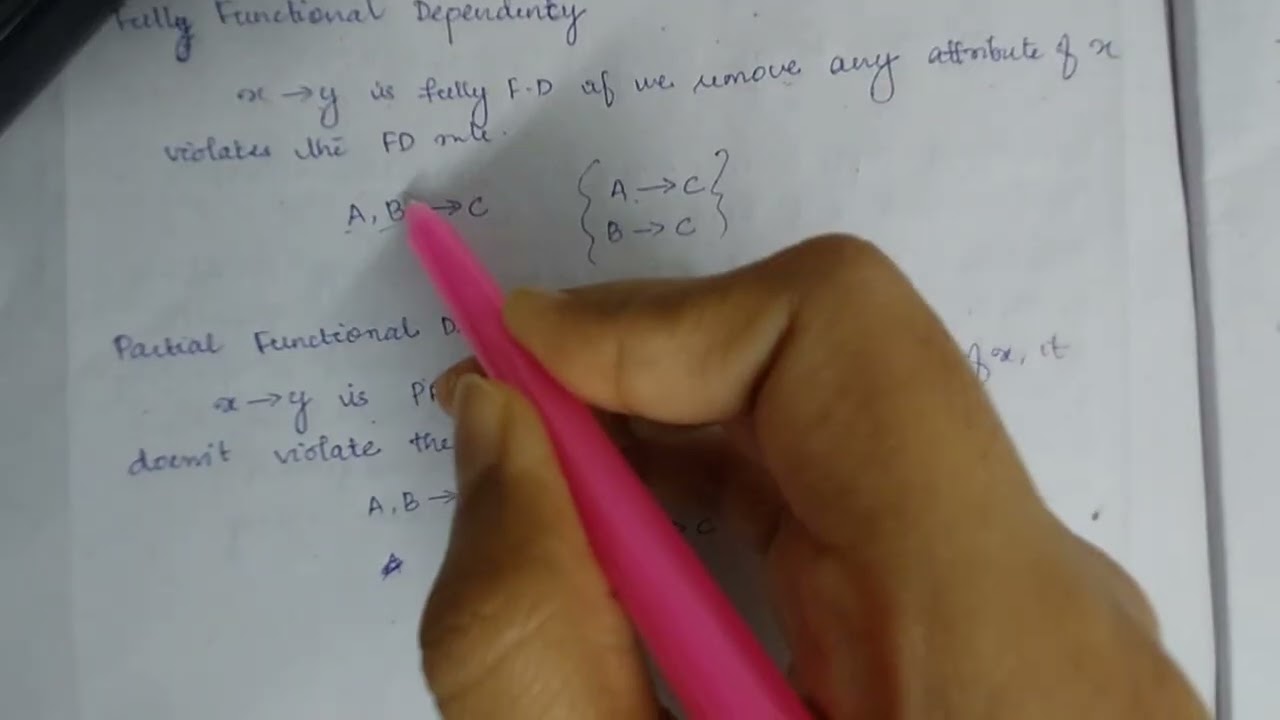 Fully Functional Dependency
x → y is fully F.D if we remove any attribute of x
violates the FD rule.
A, B → C { A → C }
{ B → C }
Partial Functional D
x → y is of x, it
doesn't violate the
A, B → → C
A